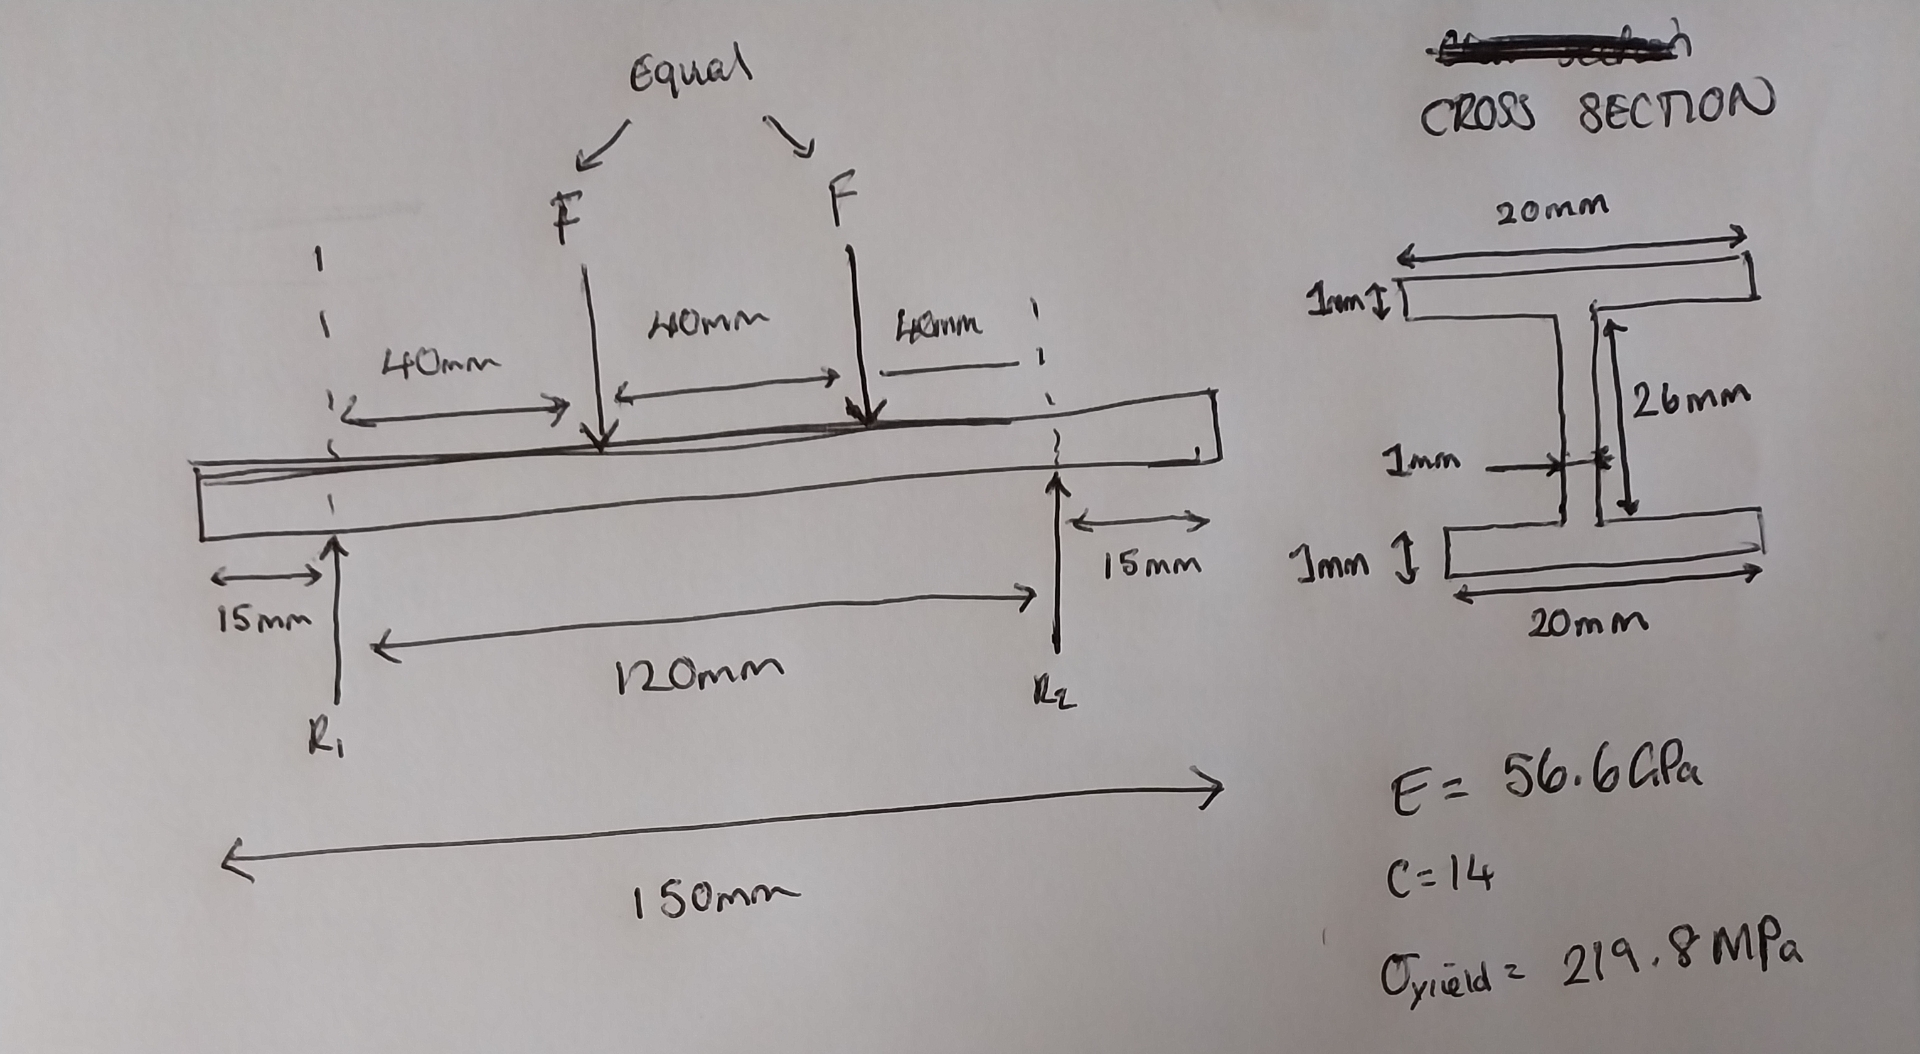 Equal
F
F
40mm
40mm
40mm
15mm
15mm
120mm
R₁
R₂
150mm
CROSS SECTION
20mm
1mm
26mm
1mm
1mm
20mm
E = 56.6 GPa
C = 14
σyield = 219.8 MPa